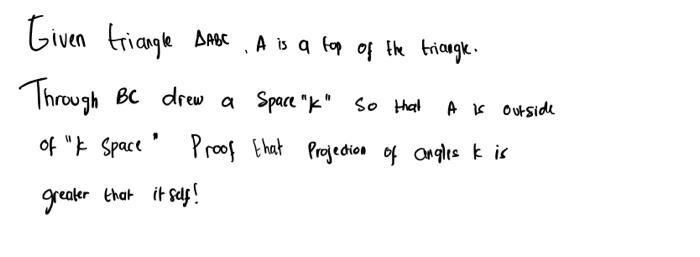 Given triangle ΔABC , A is a top of the triangle.
Through BC drew a Space "k" so that A is outside
of "k space" Proof that Projection of angles k is
greater that it self!